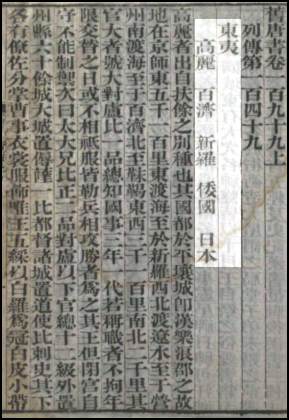 舊唐書卷一百九十九上
列傳第一百四十九
東夷
高麗 百濟 新羅 倭國 日本
高麗者出自扶餘之別種也其國都於平壤城卽漢樂浪郡之故
地在京師東五千一百里東渡海至於新羅西北渡遼水至于營
州南渡海至于百濟北至靺鞨東西三千一百里南北二千里其
官大者號大對盧比一品總知國事三年一代若稱職者不拘年
限交替之日或不相祗服皆勒兵相攻勝者爲之其王但閉宮自
守不能制禦次曰太大兄比正二品對盧以下官總十二級外置
州縣六十餘城大城置傉薩一比都督諸城置道使比刺史其下
各有僚佐分掌曹事衣裳服飾唯王五綵以白羅爲冠白皮小帶